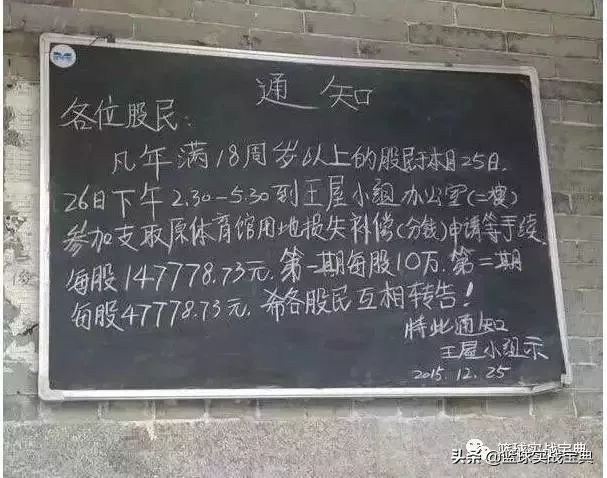 通知
各位股民:
凡年满18周岁以上的股民于本月25日.
26日下午2.30-5.30到王屋小组办公室(二楼)
参加支取原体育馆用地损失补偿(分钱)申请等手续.
每股147778.73元.第一期每股10万.第二期
每股47778.73元.希各股民互相转告!
特此通知
王屋小组示
2015.12.25
篮球实战宝典
头条@篮球实战宝典